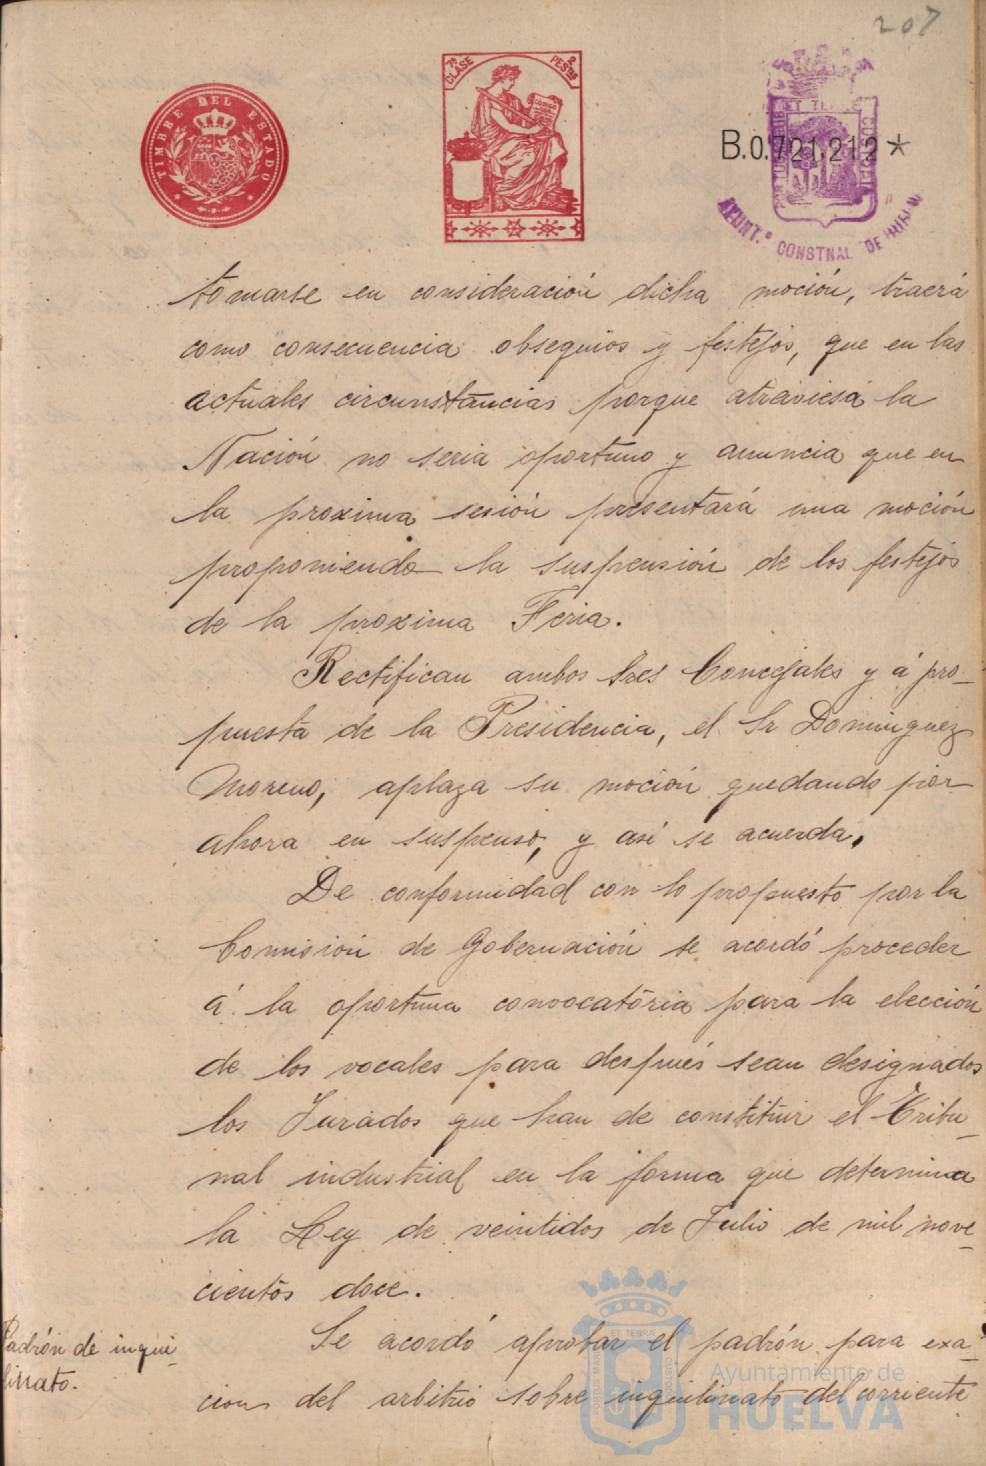 207
TIMBRE DEL ESTADO
7ª CLASE
2 PESTAS
B.0.721.212*
AYUNT.º CONSTNAL DE
tomarse en consideración dicha moción, traerá
como consecuencia obsequios y festejos, que en las
actuales circunstancias porque atraviesa la
Nación no seria oportuno y anuncia que en
la proxima sesión presentará una moción
proponiendo la suspensión de los festejos
de la proxima Feria.
Rectifican ambos Sres Concejales y á pro-
puesta de la Presidencia, el Sr Dominguez
Moreno, aplaza su moción quedando por
ahora en suspenso, y asi se acuerda.
De conformidad con lo propuesto por la
Comisión de Gobernación se acordó proceder
á la oportuna convocatoria para la elección
de los vocales para después sean designados
los Jurados que han de constituir el Tribu-
nal industrial en la forma que determina
la Ley de veintidos de Julio de mil nove-
cientos doce.
Padrón de inqui-
linato.
Se acordó aprobar el padrón para exa-
cion del arbitrio sobre inquilinato del corriente
Ayuntamiento de
HUELVA